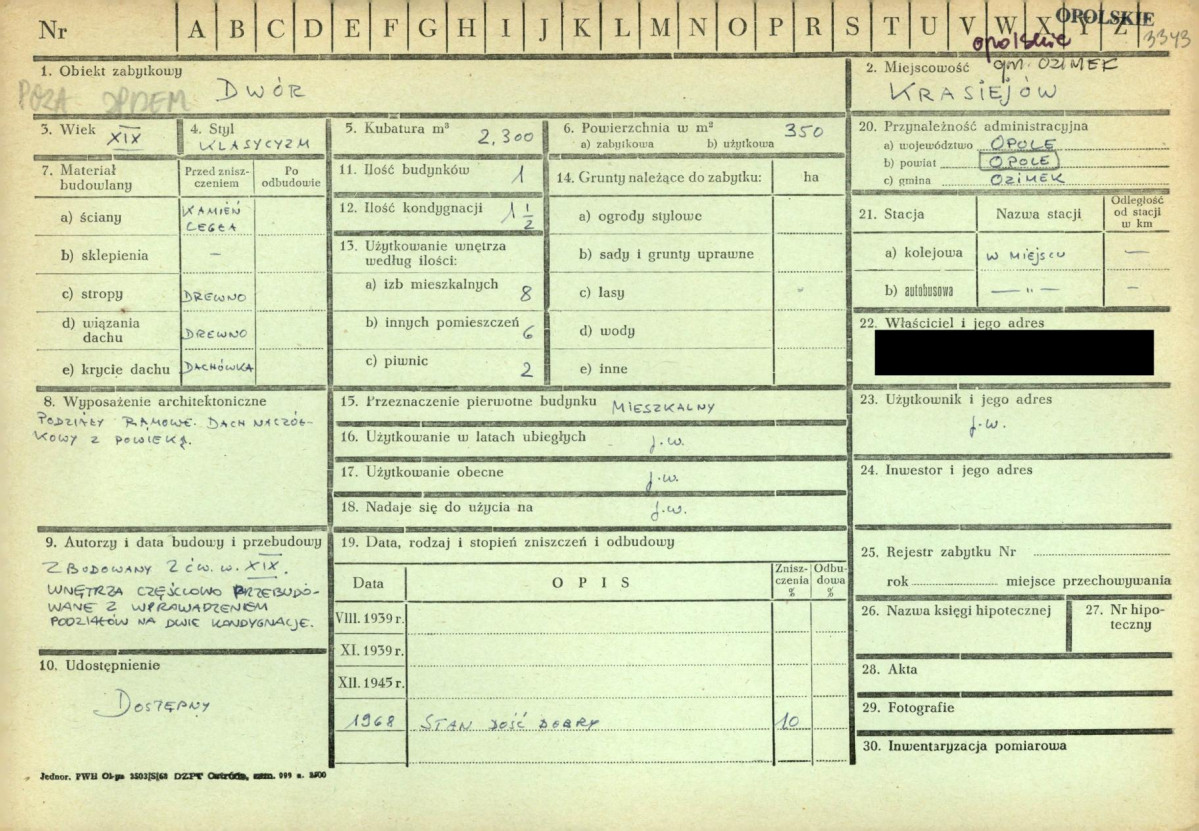 Nr A B C D E F G H I J K L M N O P R S T U V W X Y Z
OPOLSKIE
3343
opolskie
1. Obiekt zabytkowy
POZA
DWÓR
2. Miejscowość gm. OZIMEK
KRASIEJÓW
3. Wiek
XIX
4. Styl
KLASYCYZM
5. Kubatura m³ 2,300
6. Powierzchnia w m² 350
a) zabytkowa b) użytkowa
20. Przynależność administracyjna
a) województwo OPOLE
b) powiat OPOLE
c) gmina OZIMEK
7. Materiał budowlany
Przed zniszczeniem
Po odbudowie
a) ściany KAMIEŃ
CEGŁA
b) sklepienia –
c) stropy DREWNO
d) wiązania dachu DREWNO
e) krycie dachu DACHÓWKA
11. Ilość budynków 1
12. Ilość kondygnacji 1 1/2
13. Użytkowanie wnętrza
według ilości:
a) izb mieszkalnych 8
b) innych pomieszczeń 6
c) piwnic 2
14. Grunty należące do zabytku: ha
a) ogrody stylowe
b) sady i grunty uprawne
c) lasy
d) wody
e) inne
21. Stacja
Nazwa stacji
Odległość
od stacji
w km
a) kolejowa W MIEJSCU —
b) autobusowa — " — –
22. Właściciel i jego adres
8. Wyposażenie architektoniczne
PODZIAŁY RAMOWE. DACH NACZÓŁ-
KOWY Z POWIEKĄ.
15. Przeznaczenie pierwotne budynku MIESZKALNY
16. Użytkowanie w latach ubiegłych j.w.
17. Użytkowanie obecne j.w.
18. Nadaje się do użycia na j.w.
23. Użytkownik i jego adres
j.w.
24. Inwestor i jego adres
9. Autorzy i data budowy i przebudowy
ZBUDOWANY 2 ĆW. W. XIX.
WNĘTRZA CZĘŚCIOWO PRZEBUDO-
WANE Z WPROWADZENIEM
PODZIAŁÓW NA DWIE KONDYGNACJE.
10. Udostępnienie
DOSTĘPNY
19. Data, rodzaj i stopień zniszczeń i odbudowy
Data
OPIS
Znisz-
czenia
%
Odbu-
dowa
%
VIII. 1939 r.
XI. 1939 r.
XII. 1945 r.
1968 STAN DOŚĆ DOBRY 10
25. Rejestr zabytku Nr
rok miejsce przechowywania
26. Nazwa księgi hipotecznej
27. Nr hipo-
teczny
28. Akta
29. Fotografie
30. Inwentaryzacja pomiarowa
Jednor. PWH